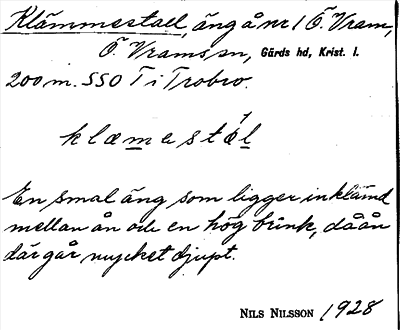 Klämmestall, äng å nr 1 Ö. Vram,
Ö. Vrams sn, Gärds hd, Krist. l.
200 m. SSO T i Trobro.
klæmestǽl
En smal äng som ligger inklämd
mellan ån och en hög brink, då ån
där går mycket djupt.
NILS NILSSON 1928